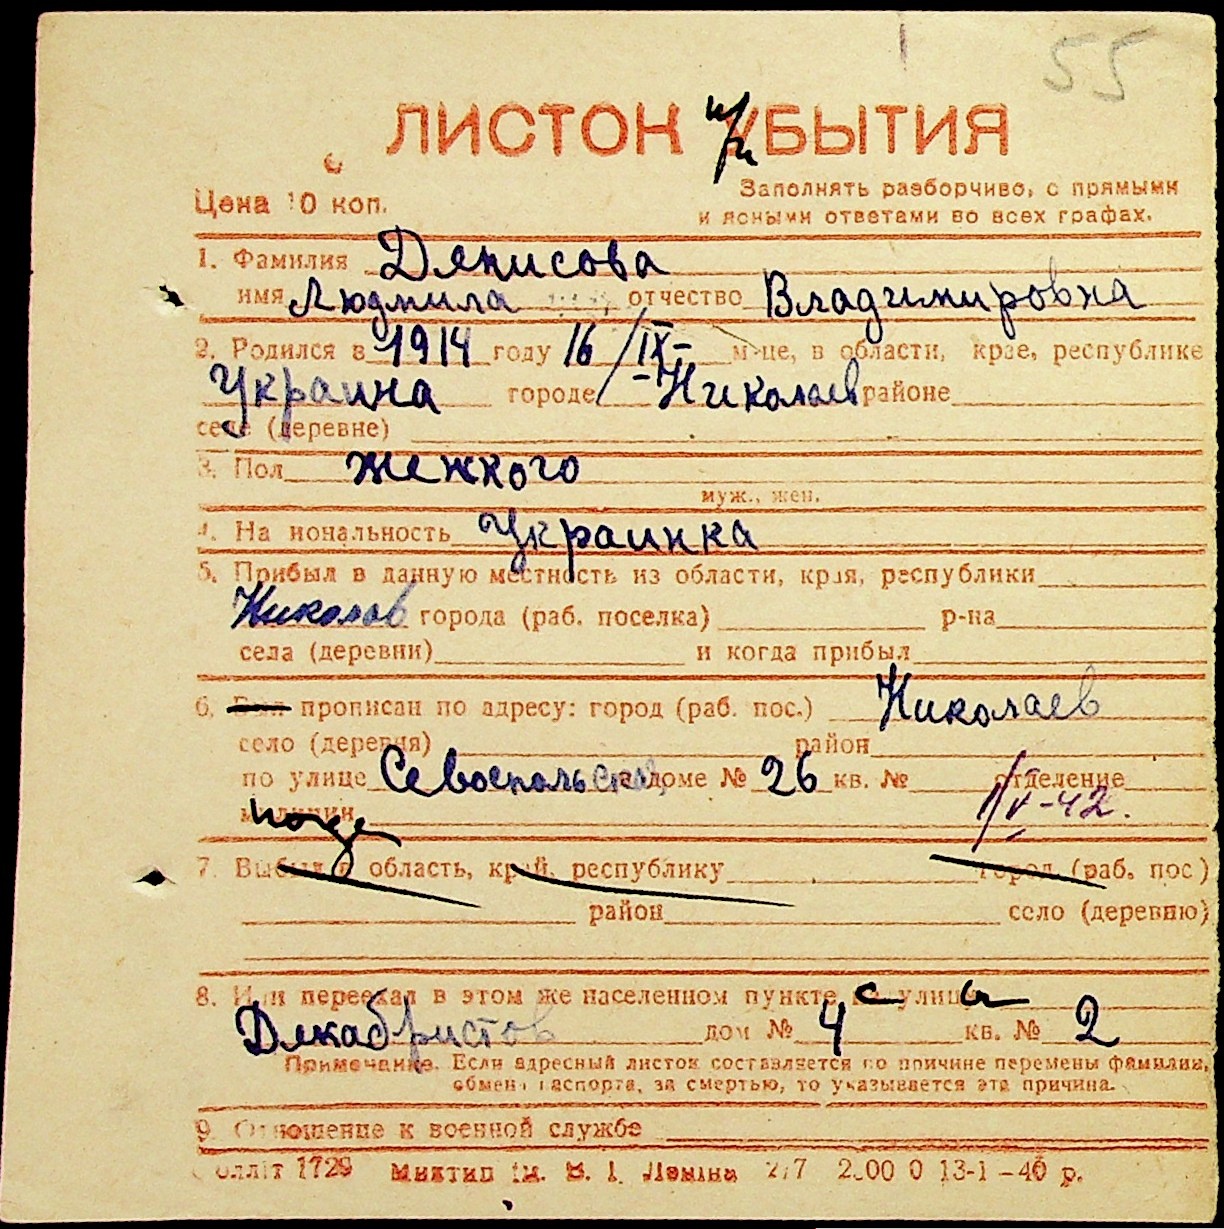 55
ЛИСТОК УБЫТИЯ
Цена 10 коп.
Заполнять разборчиво, с прямыми
и ясными ответами во всех графах.
1. Фамилия Дянисова
имя Людмила отчество Владимировна
2. Родился в 1914 году 16/IX- м-це, в области, крае, республике
Украина городе -Николаев районе
селе (деревне)
3. Пол женкого
муж., жен.
4. Национальность Украинка
5. Прибыл в данную местность из области, края, республики
Николов города (раб. поселка) р-на
села (деревни) и когда прибыл
6. Был прописан по адресу: город (раб. пос.) Николаев
село (деревня) район
по улице дом № 26 кв. № отделение
милиции 1/V-42.
7. Выбыл в область, край, республику город (раб. пос)
район село (деревню)
8. Или переехал в этом же населенном пункте на улицу
Дякабристов дом № 4 кв. № 2
Примечание. Если адресный листок составляется по причине перемены фамилии,
обмена паспорта, за смертью, то указывается эта причина.
9. Отношение к военной службе
Обліт 1729 Миктип ім. В. І. Леніна 13-1-40 р.